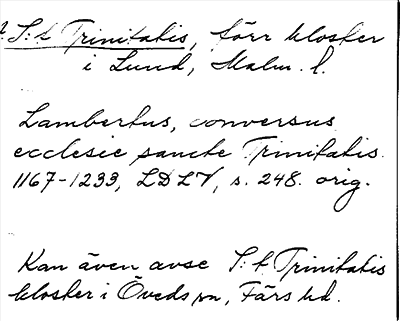 S:t Trinitatis, förr kloster
i Lund, Malm. l.
Lambertus, conversus
ecclesie sancte Trinitatis
1167-1233, LDLV, s. 248. orig.
Kan även avse S:t Trinitatis
kloster i Öveds sn, Färs hd.